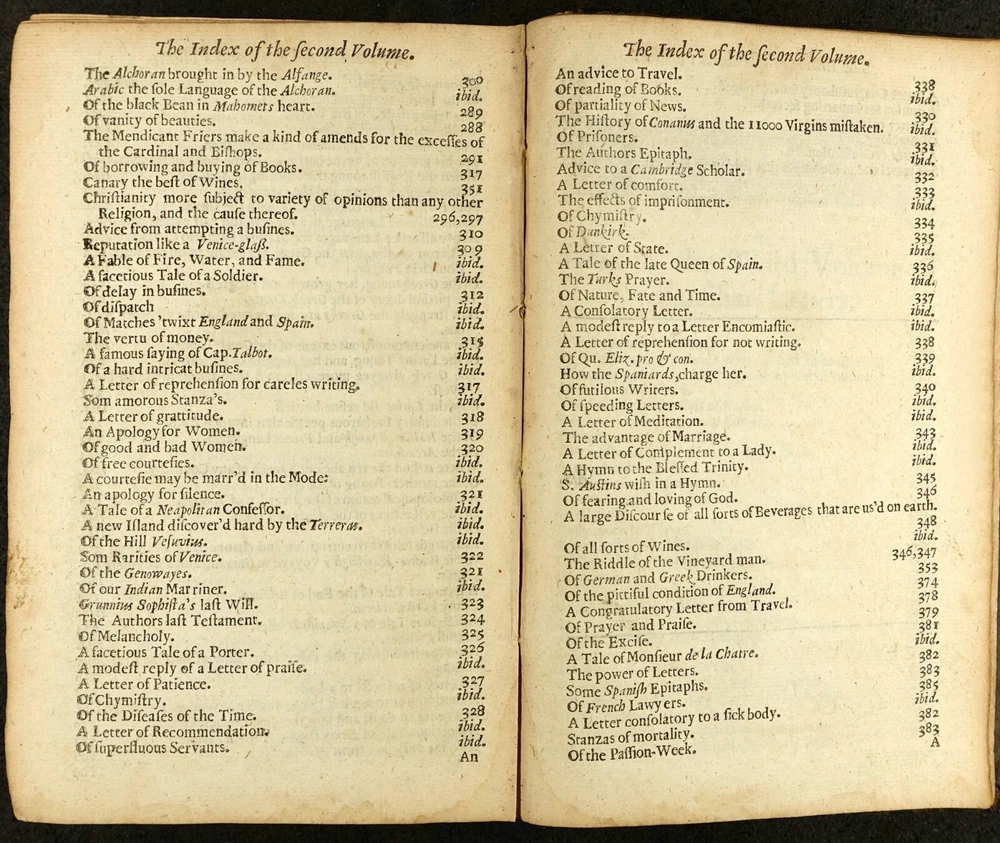 The Index of the ſecond Volume.
The Alchoran brought in by the Alfange. 300
Arabic the ſole Language of the Alchoran. ibid.
Of the black Bean in Mahomets heart. 289
Of vanity of beauties. 288
The Mendicant Friers make a kind of amends for the exceſſes of
the Cardinal and Biſhops. 291
Of borrowing and buying of Books. 317
Canary the beſt of Wines. 351
Chriſtianity more ſubject to variety of opinions than any other
Religion, and the cauſe thereof. 296,297
Advice from attempting a buſines. 310
Reputation like a Venice-glaß. 309
A Fable of Fire, Water, and Fame. ibid.
A facetious Tale of a Soldier. ibid.
Of delay in buſines. 312
Of diſpatch ibid.
Of Matches 'twixt England and Spain. ibid.
The vertu of money. 315
A famous ſaying of Cap. Talbot. ibid.
Of a hard intricat buſines. ibid.
A Letter of reprehenſion for careles writing. 317
Som amorous Stanza's. ibid.
A Letter of grattitude. 318
An Apology for Women. 319
Of good and bad Women. 320
Of free courteſies. ibid.
A courteſie may be marr'd in the Mode: ibid.
An apology for ſilence. 321
A Tale of a Neapolitan Confeſſor. ibid.
A new Iſland diſcover'd hard by the Terreras. ibid.
Of the Hill Veſuvius. ibid.
Som Rarities of Venice. 322
Of the Genowayes. 321
Of our Indian Marriner. ibid.
Grunnius Sophiſta's laſt Will. 323
The Authors laſt Teſtament. 324
Of Melancholy. 325
A facetious Tale of a Porter. 326
A modeſt reply of a Letter of praiſe. ibid.
A Letter of Patience. 327
Of Chymiſtry. ibid.
Of the Diſeaſes of the Time. 328
A Letter of Recommendation. ibid.
Of ſuperfluous Servants. ibid.
An
The Index of the ſecond Volume.
An advice to Travel. 338
Of reading of Books. ibid.
Of partiality of News. 330
The Hiſtory of Conanus and the 11000 Virgins miſtaken. ibid.
Of Priſoners. 331
The Authors Epitaph. ibid.
Advice to a Cambridge Scholar. 332
A Letter of comfort. 333
The effects of impriſonment. ibid.
Of Chymiſtry. 334
Of Dunkirk. 335
A Letter of State. ibid.
A Tale of the late Queen of Spain. 336
The Turks Prayer. ibid.
Of Nature, Fate and Time. 337
A Conſolatory Letter. ibid.
A modeſt reply to a Letter Encomiaſtic. ibid.
A Letter of reprehenſion for not writing. 338
Of Qu. Eliz. pro & con. 339
How the Spaniards, charge her. ibid.
Of futilous Writers. 340
Of ſpeeding Letters. ibid.
A Letter of Meditation. ibid.
The advantage of Marriage. 343
A Letter of Complement to a Lady. ibid.
A Hymn to the Bleſſed Trinity. ibid.
S. Auſtins wiſh in a Hymn. 345
Of fearing and loving of God. 346
A large Diſcourſe of all ſorts of Beverages that are us'd on earth.
348
Of all ſorts of Wines. ibid.
The Riddle of the Vineyard man. 346,347
Of German and Greek Drinkers. 353
Of the pittiful condition of England. 374
A Congratulatory Letter from Travel. 378
Of Prayer and Praiſe. 379
Of the Exciſe. 381
A Tale of Monſieur de la Chatre. ibid.
The power of Letters. 382
Some Spaniſh Epitaphs. 383
Of French Lawyers. 385
A Letter conſolatory to a ſick body. ibid.
Stanzas of mortality. 382
Of the Paſſion-Week. 383
A